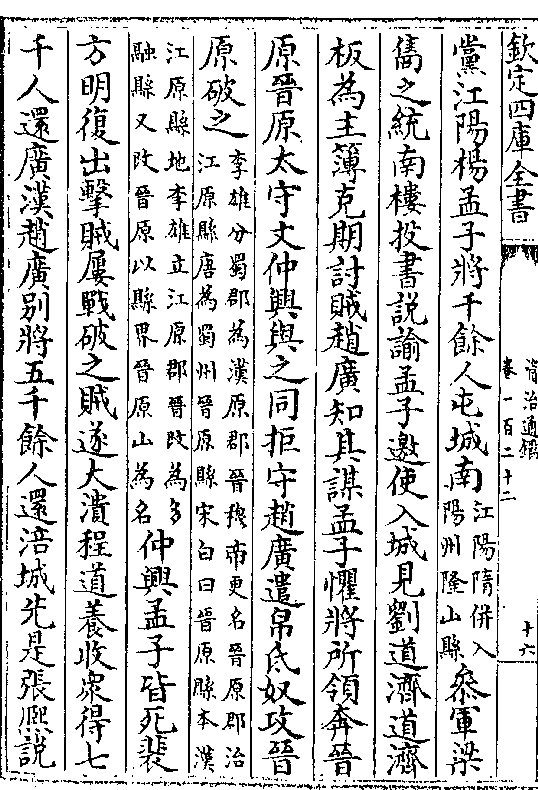 欽定四庫全書
資治通鑑
卷一百二十二
十六
黨江陽楊孟子將千餘人屯城南江陽隋併入陽州隆山縣參軍梁
儁之統南樓投書說諭孟子邀使入城見劉道濟道濟
板為主簿克期討賊趙廣知其謀孟子懼將所領奔晉
原晉原太守文仲興與之同拒守趙廣遣帛氐奴攻晉
原破之李雄分蜀郡為漢原郡晉穆帝更名晉原郡治江原縣唐為蜀州晉原縣宋白曰晉原縣本漢
江原縣地李雄立江原郡晉改為多融縣又改晉原以縣界晉原山為名仲興孟子皆死裴
方明復出擊賊屢戰破之賊遂大潰程道養收衆得七
千人還廣漢趙廣别將五千餘人還涪城先是張熈說